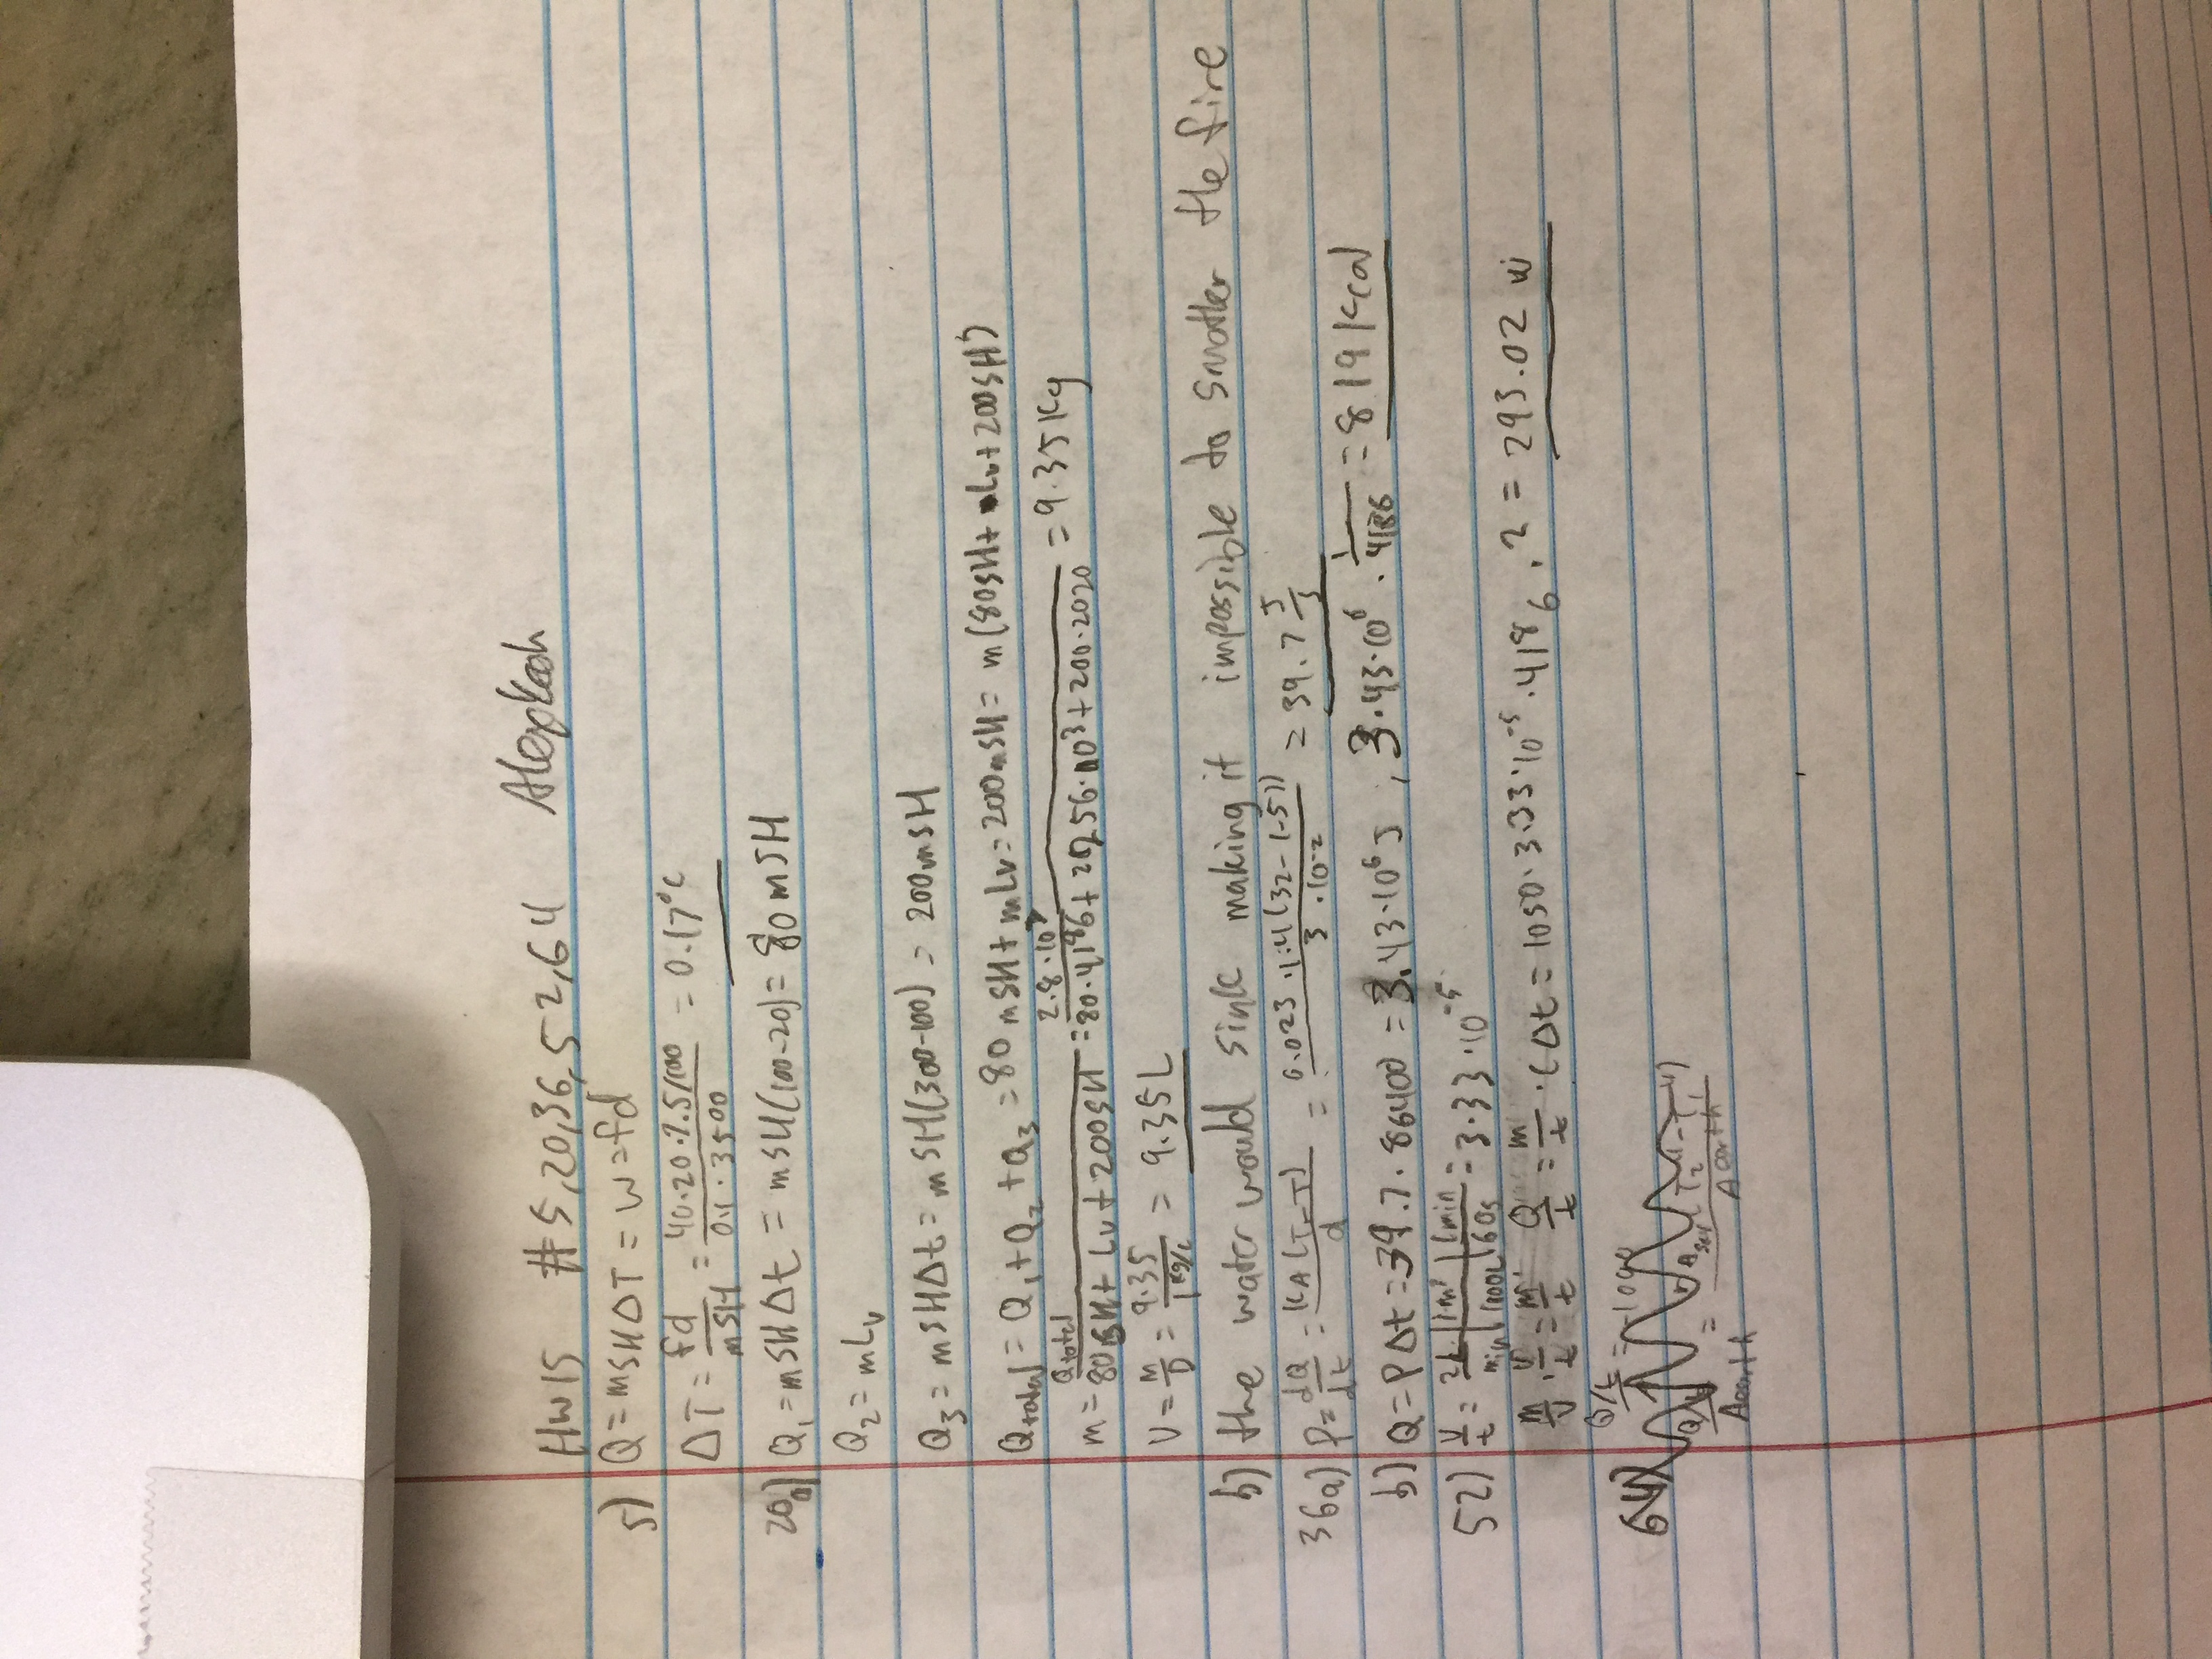 HW15 #5,20,36,52,64
5) Q = mSHΔT = W = fd
ΔT = fd/mSH = 40·20·7.5/100 / 0.1·3500 = 0.17°C
20a) Q₁ = mSHΔt = mSH(100-20) = 80mSH
Q₂ = mLv
Q₃ = mSHΔt = mSH(300-100) = 200mSH
Qtotal = Q₁ + Q₂ + Q₃ = 80mSH + mLv = 200mSH = m(80SH + Lv + 200SH)
m = Qtotal / 80SH + Lv + 200SH = 2.8·10⁷ / 80·4186 + 2256·10³ + 200·2020 = 9.35Kg
V = M/D = 9.35 / 1kg/L = 9.35L
b) the water would sink making it impossible to smother the fire
36a) P = dQ/dt = KA(T-T)/d = 0.023·1.4(32-(-5)) / 3·10⁻² = 39.7 J/s
b) Q = PΔt = 39.7·86400 = 3.43·10⁶J, 3.43·10⁶ · 1/4186 = 819 Kcal
52) V/t = 2L/min | 1m³/1000L | 1min/60s = 3.33·10⁻⁵
m/V · V/t = m/t Q/t = m/t · CΔt = 1050·3.33·10⁻⁵·4186·2 = 293.02 W
64) Q/t =
Aearth = Aearth